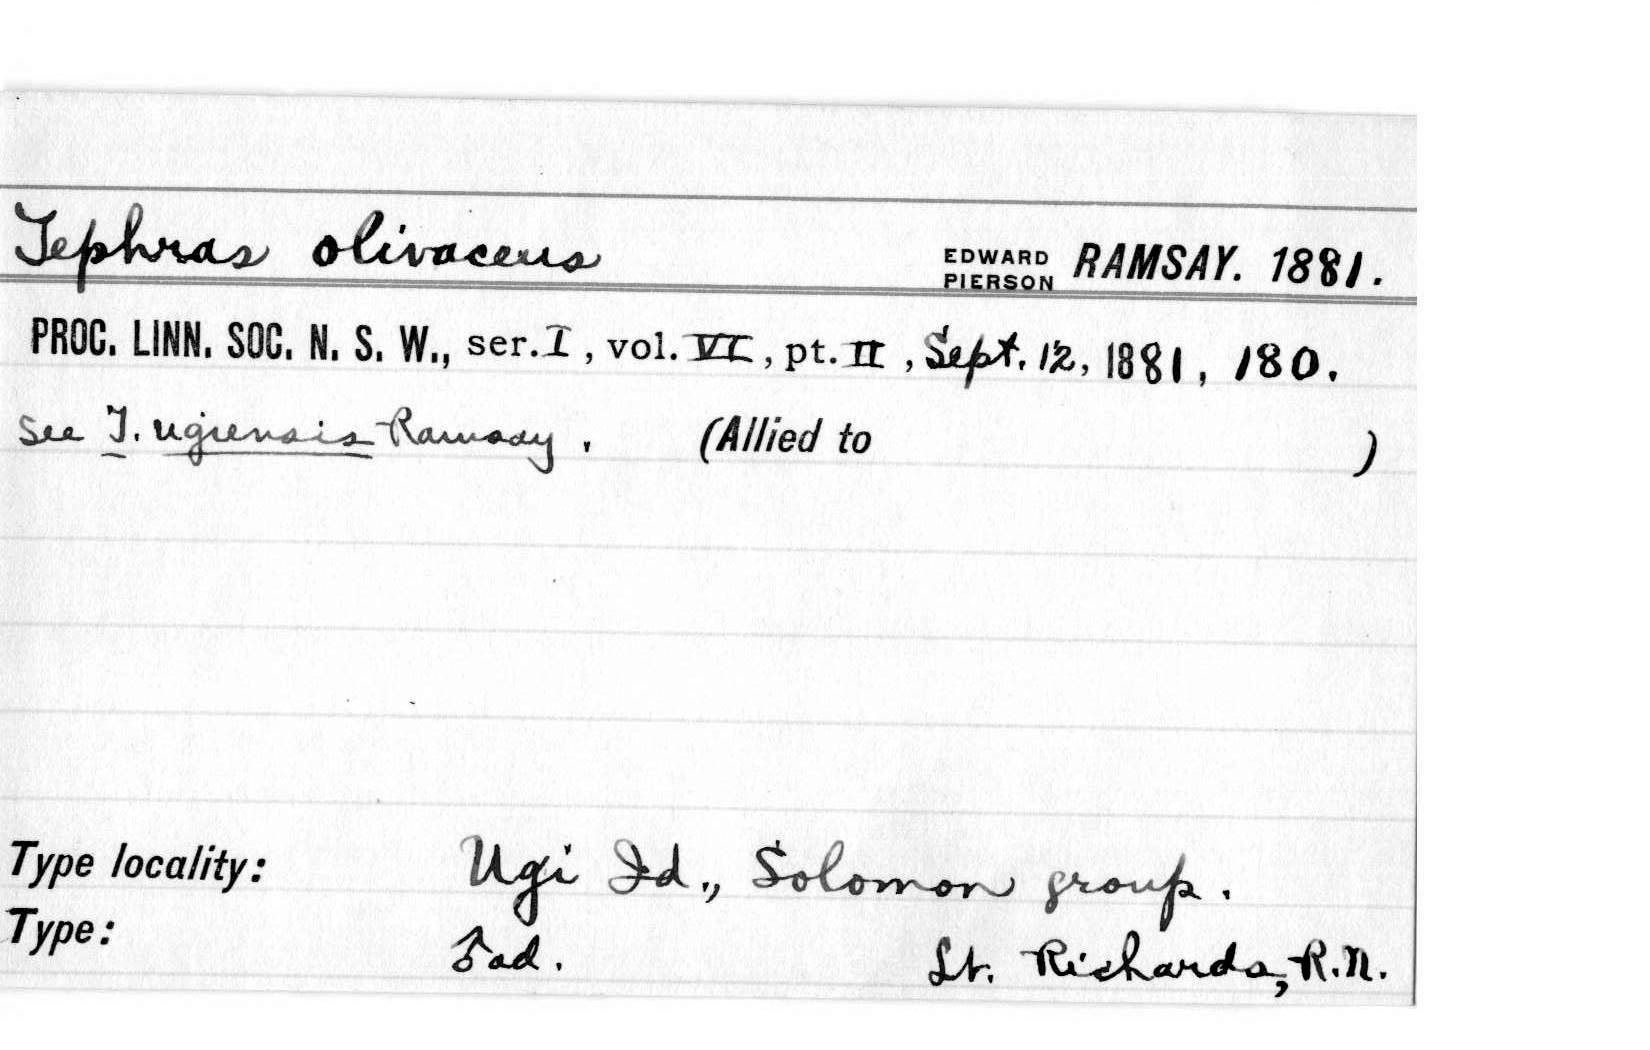 Tephras olivaceus EDWARD PIERSON RAMSAY. 1881.
PROC. LINN. SOC. N. S. W., ser. I, vol. VI, pt. II, Sept. 12, 1881, 180.
See T. ugiensis Ramsay. (Allied to )
Type locality: Ugi Id., Solomon group.
Type: ♂ ad. Lt. Richards, R.N.